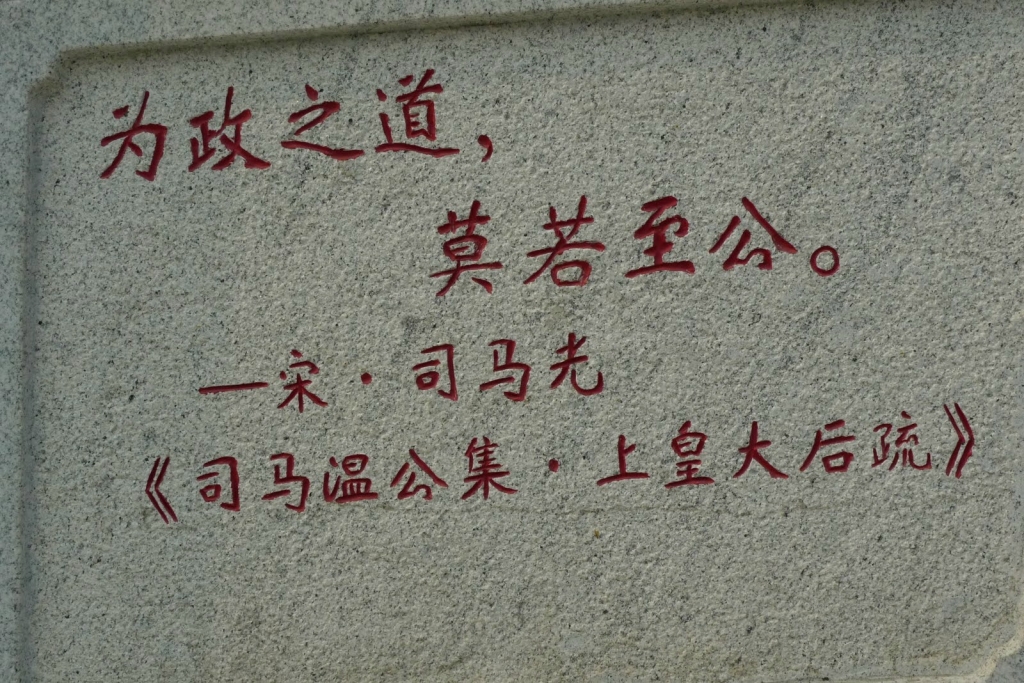 为政之道，
莫若至公。
—宋·司马光
《司马温公集·上皇大后疏》